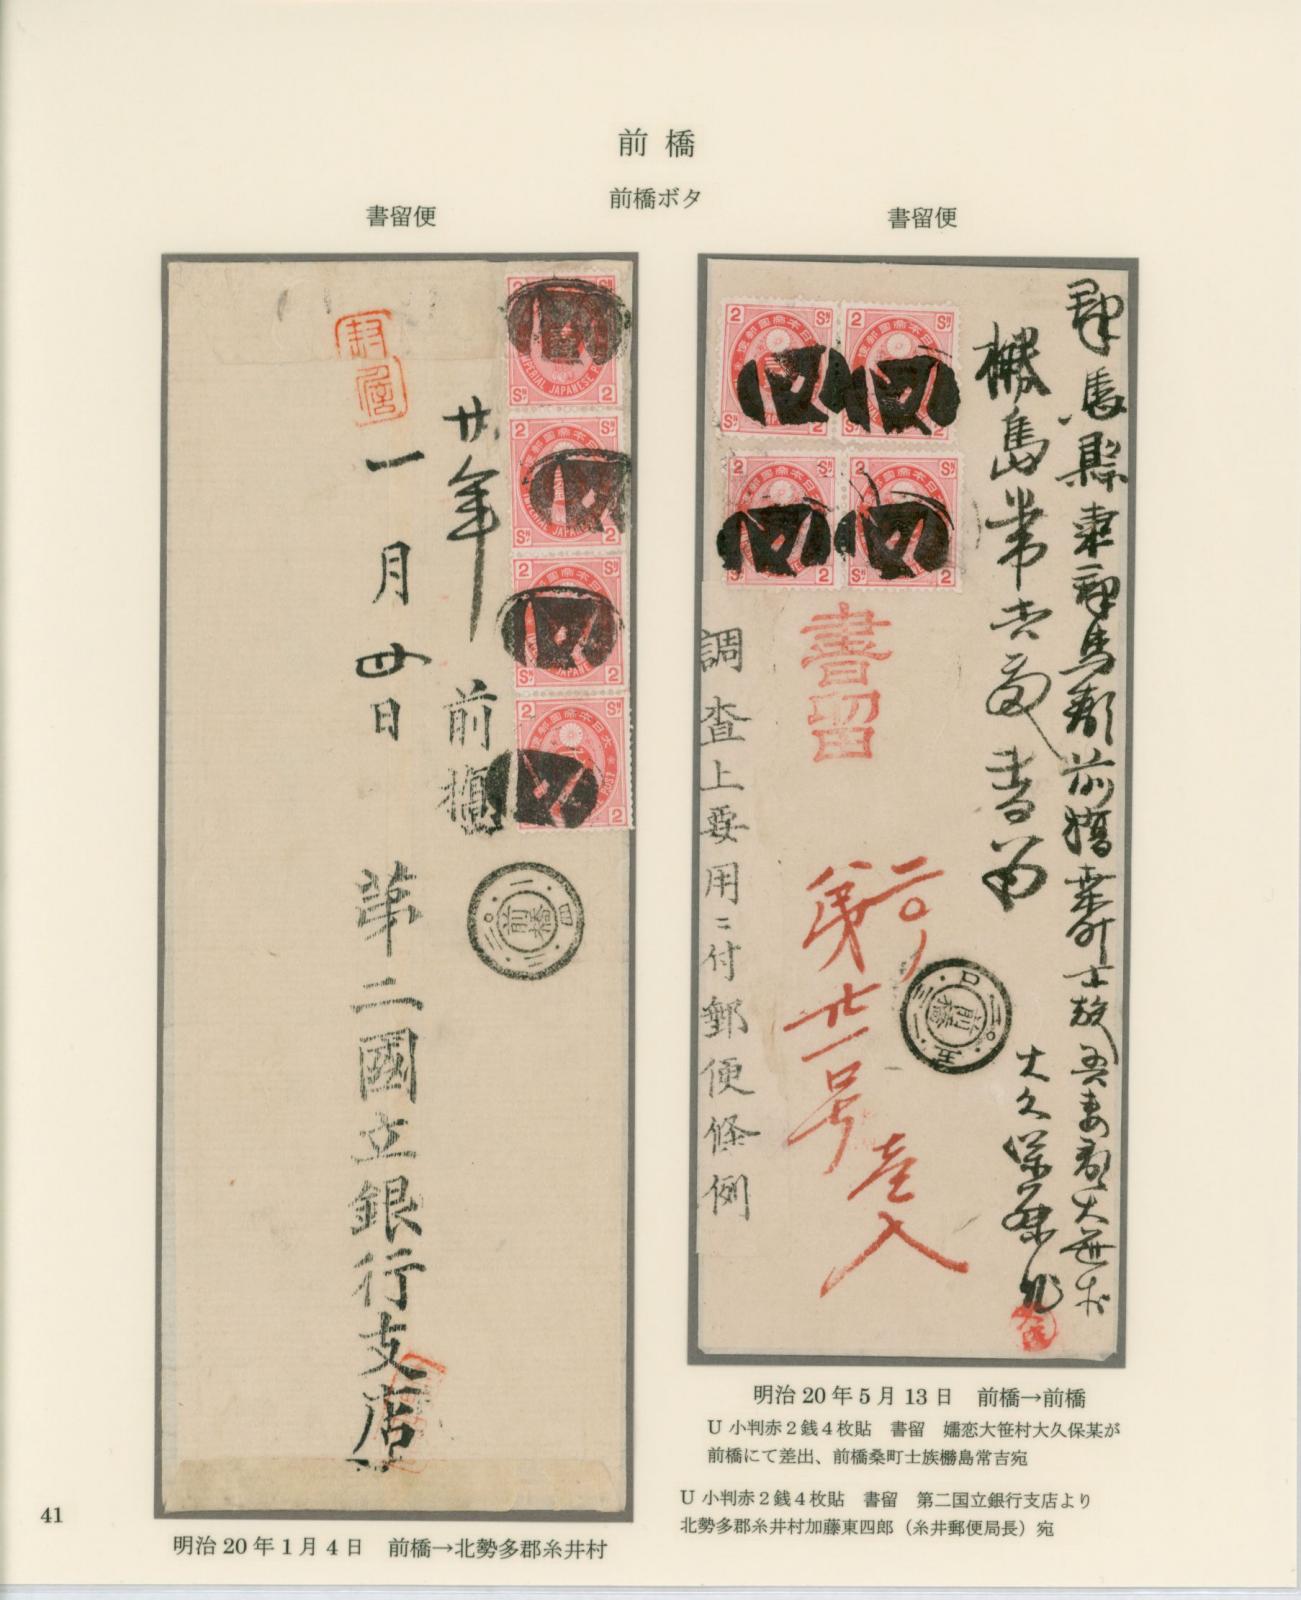 前橋
前橋ボタ
書留便
書留便
廿年
一月四日
前橋
第二國立銀行支店
2 SN
IMPERIAL JAPANESE POST
SN 2
前橋
群馬縣東群馬郡前橋桑町士族
吾妻郡大笹村
樆島常吉殿 書留
大久保
書留
二〇、
第廿一号
壱入
調査上要用ニ付郵便條例
前橋
明治20年5月13日 前橋→前橋
U 小判赤2銭4枚貼 書留 嬬恋大笹村大久保某が
前橋にて差出、前橋桑町士族樆島常吉宛
U 小判赤2銭4枚貼 書留 第二国立銀行支店より
北勢多郡糸井村加藤東四郎(糸井郵便局長)宛
41
明治20年1月4日 前橋→北勢多郡糸井村